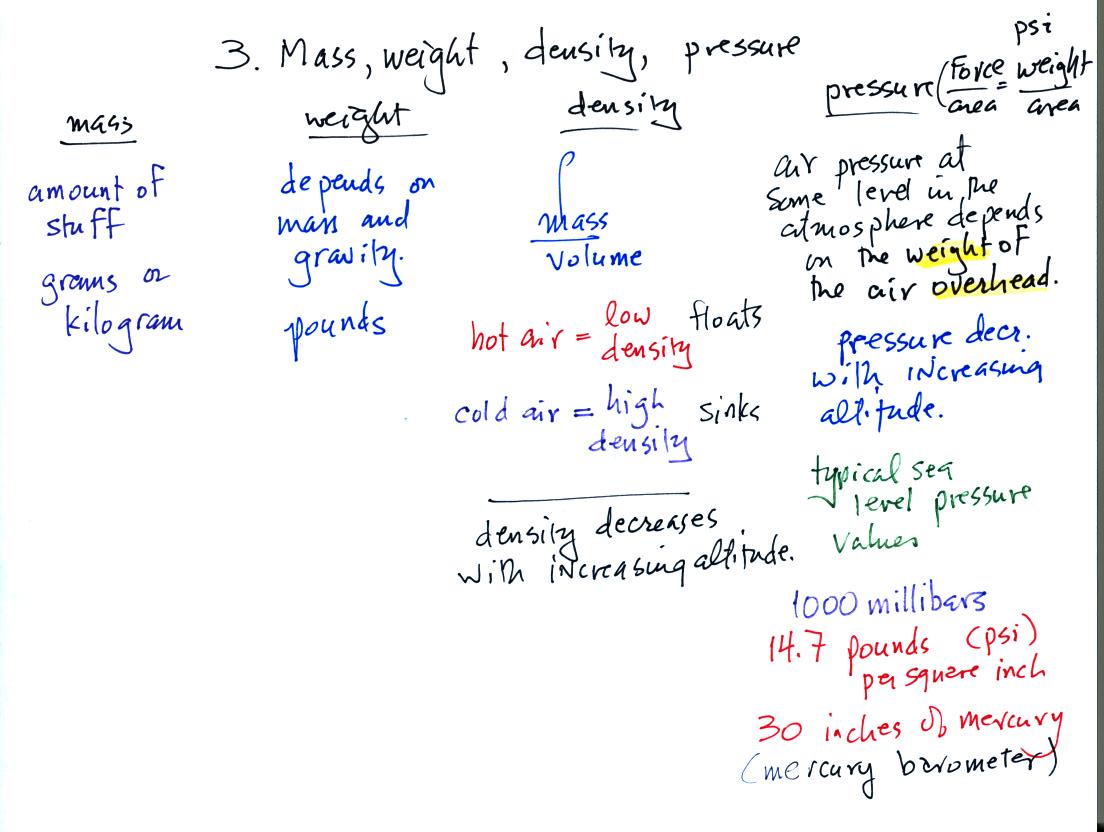 3. Mass, weight, density, pressure
mass
amount of
stuff
grams or
kilogram
weight
depends on
mass and
gravity.
pounds
density
mass
volume
hot air = low density floats
cold air = high density sinks
density decreases
with increasing altitude.
psi
pressure (Force/area = weight/area
air pressure at
some level in the
atmosphere depends
on the weight of
the air overhead.
pressure decr.
with increasing
altitude.
typical sea
level pressure
values
1000 millibars
14.7 pounds (psi)
per square inch
30 inches of mercury
(mercury barometer)